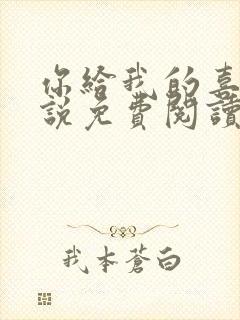 你給我的喜
說免費閱讀
我本蒼白